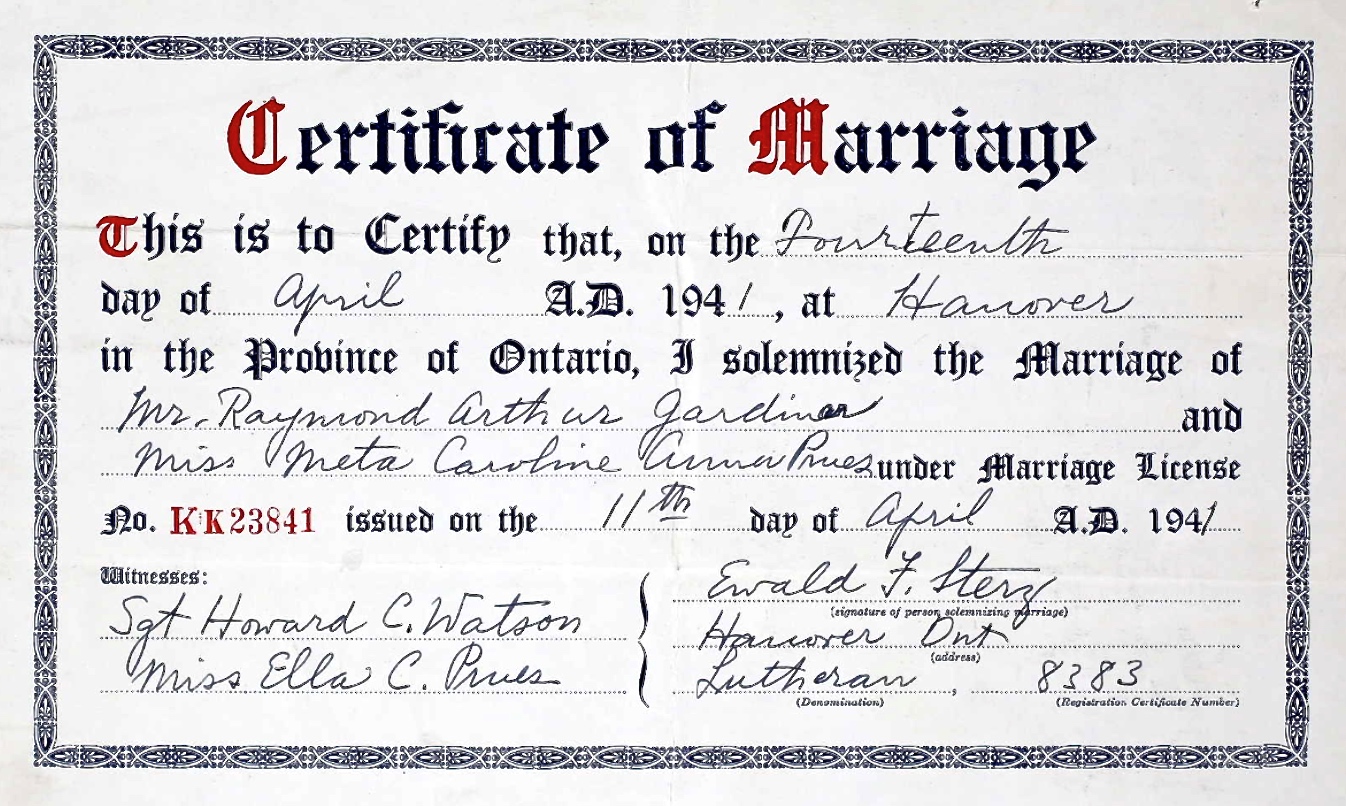 Certificate of Marriage
This is to Certify that, on the Fourteenth
day of April A.D. 1941, at Hanover
in the Province of Ontario, I solemnized the Marriage of
Mr. Raymond Arthur Gardiner and
Miss Meta Caroline Anna Prues under Marriage License
No. KK23841 issued on the 11th day of April A.D. 1941
Witnesses:
Sgt Howard C. Watson
Miss Ella C. Prues
Ewald F. Sterz
(signature of person solemnizing marriage)
Hanover Ont
(address)
Lutheran, 8383
(Denomination) (Registration Certificate Number)